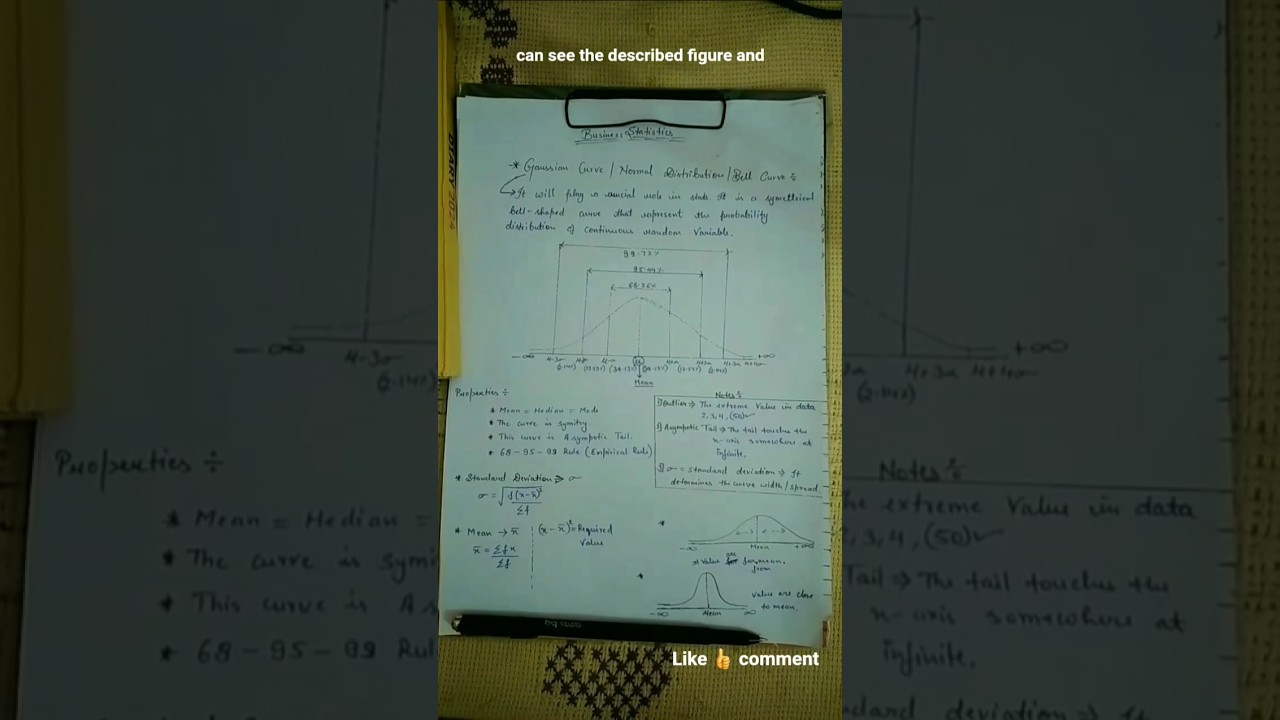 can see the described figure and
Business Statistics
* Gaussian Curve / Normal Distribution / Bell Curve ÷
→ It will play a crucial role in stats. It is a symettrical
bell-shaped curve that represent the probability
distribution of continuous random Variable.
99.72%
95.44%
68.26%
-∞ μ-3σ μ-σ μ μ+3σ μ+4σ +∞
(2.14%)
Mean
Properties ÷
* Mean = Median = Mode
* The curve is symitry
* This curve is Asympotic Tail.
* 68-95-99 Rule (Empirical Rule)
Notes ÷
1) Outlier ⇒ The extreme Value in data
2, 3, 4, (50)✓
2) Asympotic Tail ⇒ The tail touches the
x-axis somewhere at
infinite.
3) σ = standard deviation ⇒ It
determines the curve width/spread.
* Standard Deviation ⇒ σ
σ = √f(x-x̄)²/Σf
* Mean → x̄
x̄ = Σfx/Σf
(x-x̄)² = Required
Value
*
-∞ Mean +∞
value are far mean.
from
*
-∞ Mean ∞
value are close
to mean.
DIARY 2024
Like 👍 comment